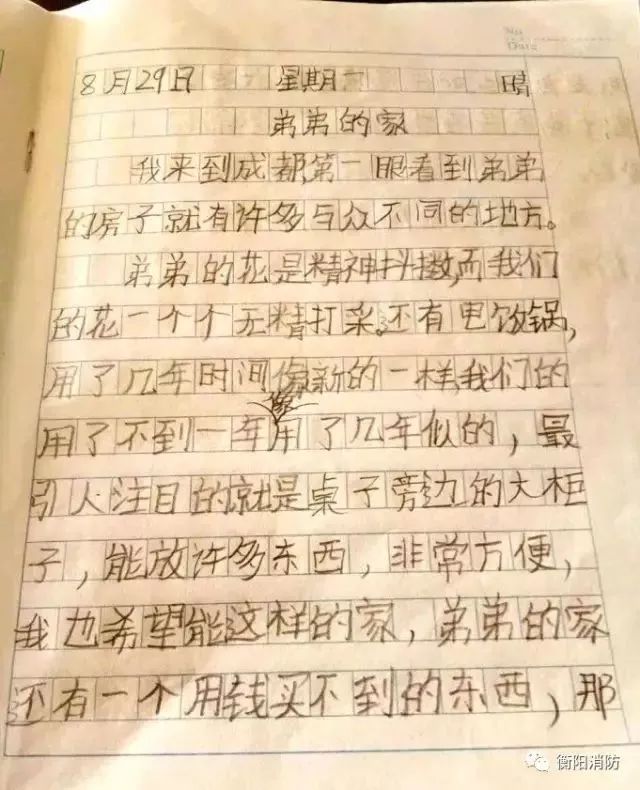 No
Date
8月29日 星期一 晴
弟弟的家
我来到成都,第一眼看到弟弟
的房子就有许多与众不同的地方。
弟弟的花是精神抖擞,而我们
的花一个个无精打采。还有电饭锅,
用了几年时间像新的一样,我们的
用了不到一年像用了几年似的，最
引人注目的就是桌子旁边的大柜
子，能放许多东西，非常方便，
我也希望能这样的家，弟弟的家
还有一个用钱买不到的东西，那
衡阳消防